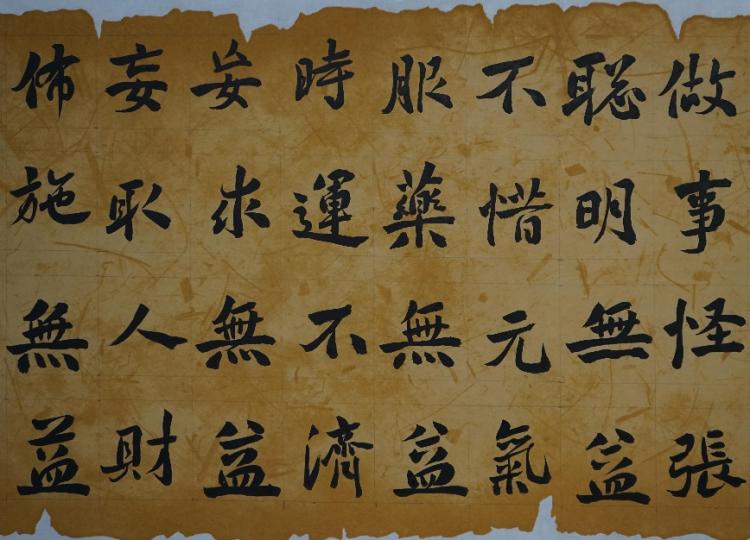 做事怪張
聪明無益
不惜元氣
服藥無益
時運不濟
妄求無益
妄取人財
佈施無益